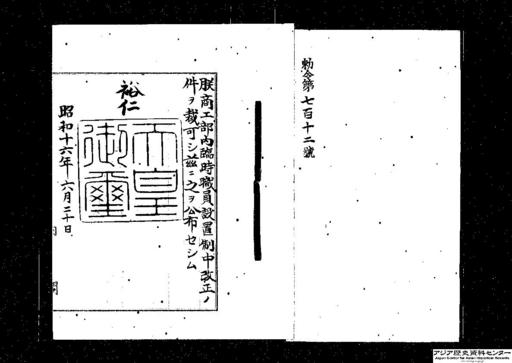 勅令第七百十二號
朕商工部內臨時職員設置制中改正ノ
件ヲ裁可シ茲ニ之ヲ公布セシム
裕仁
天皇
御璽
昭和十六年六月二十日
アジア歴史資料センター
Japan Center for Asian Historical Records